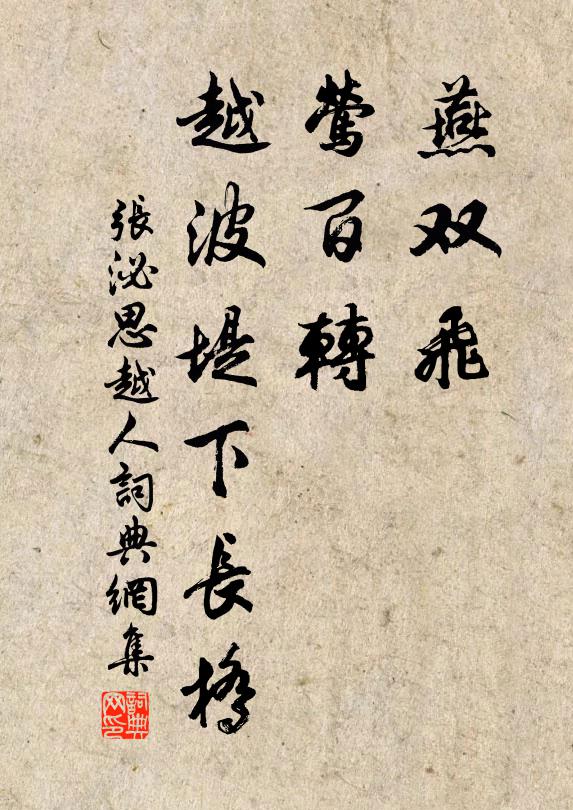 燕双飛
鶯百轉
越波堤下長橋
張泌思越人詞典網集
詞典网印